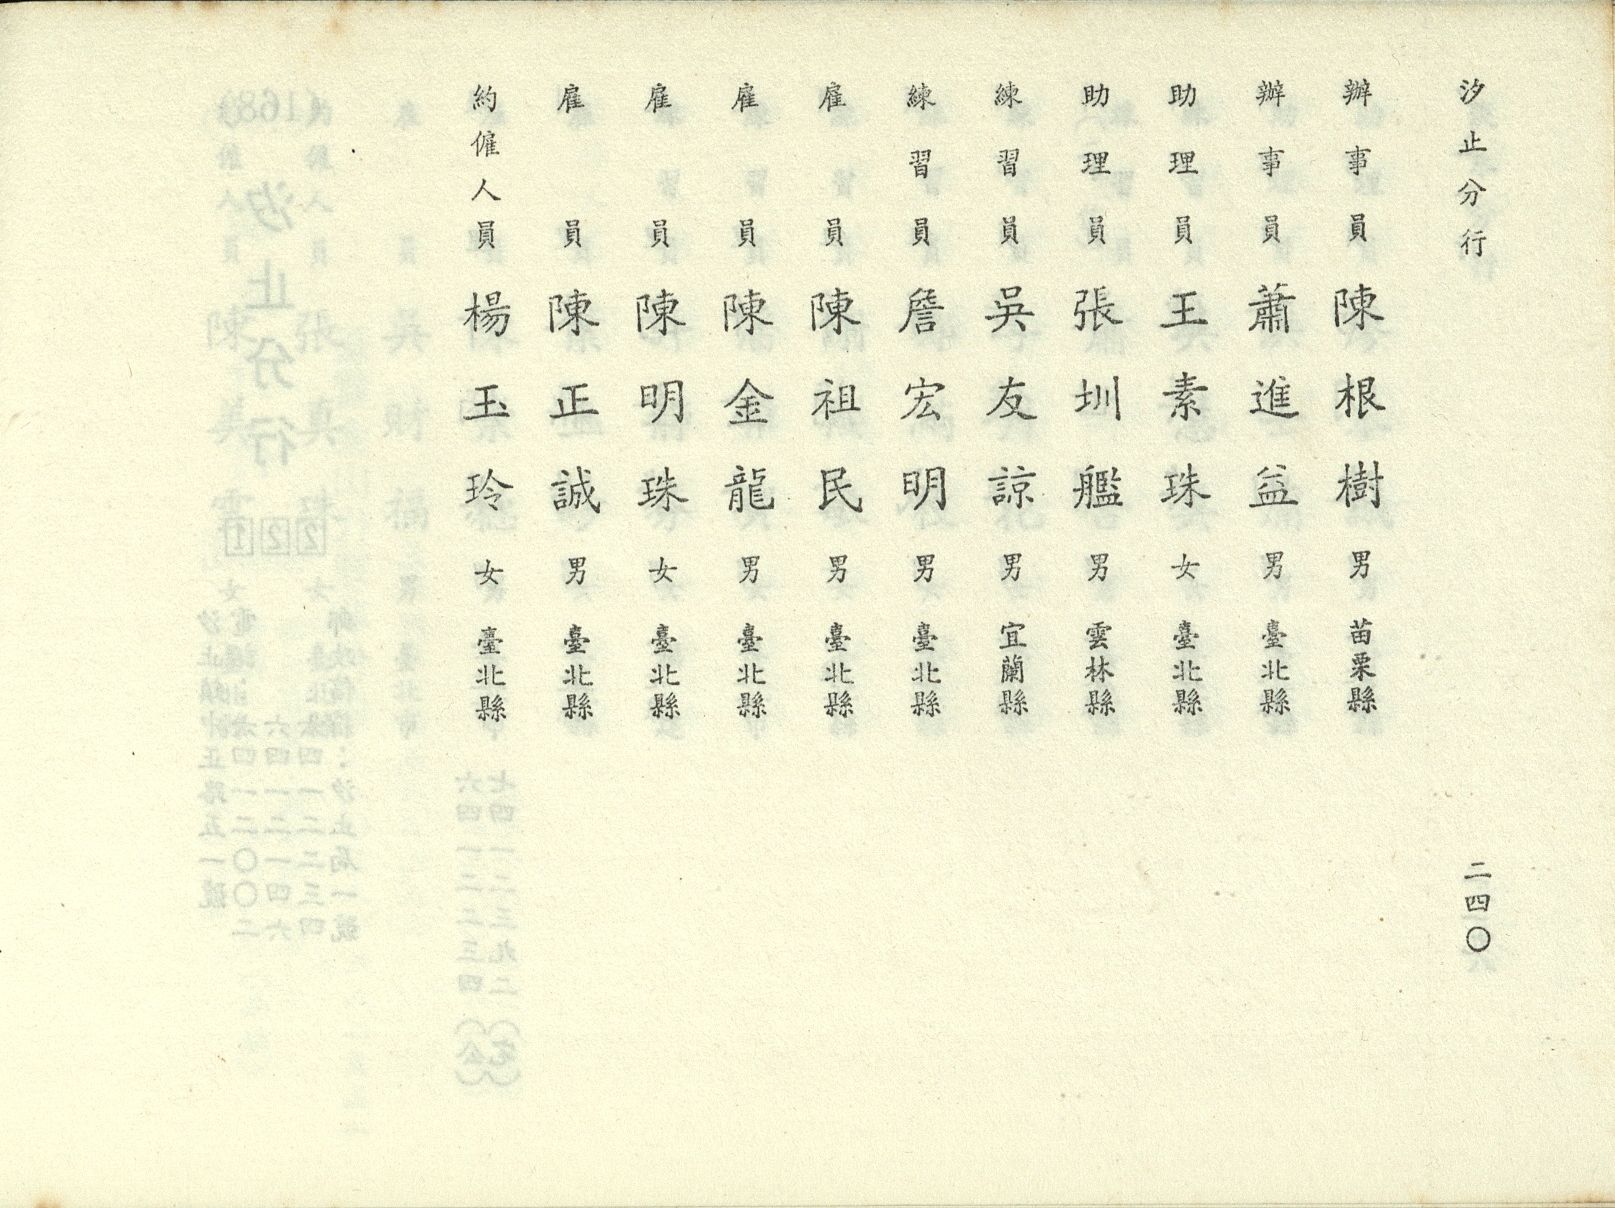 汐止分行
二四〇
辦事員 陳根樹 男 苗栗縣
辦事員 蕭進益 男 臺北縣
助理員 王素珠 女 臺北縣
助理員 張圳艦 男 雲林縣
練習員 吳友諒 男 宜蘭縣
練習員 詹宏明 男 臺北縣
雇員 陳祖民 男 臺北縣
雇員 陳金龍 男 臺北縣
雇員 陳明珠 女 臺北縣
雇員 陳正誠 男 臺北縣
約僱人員 楊玉玲 女 臺北縣